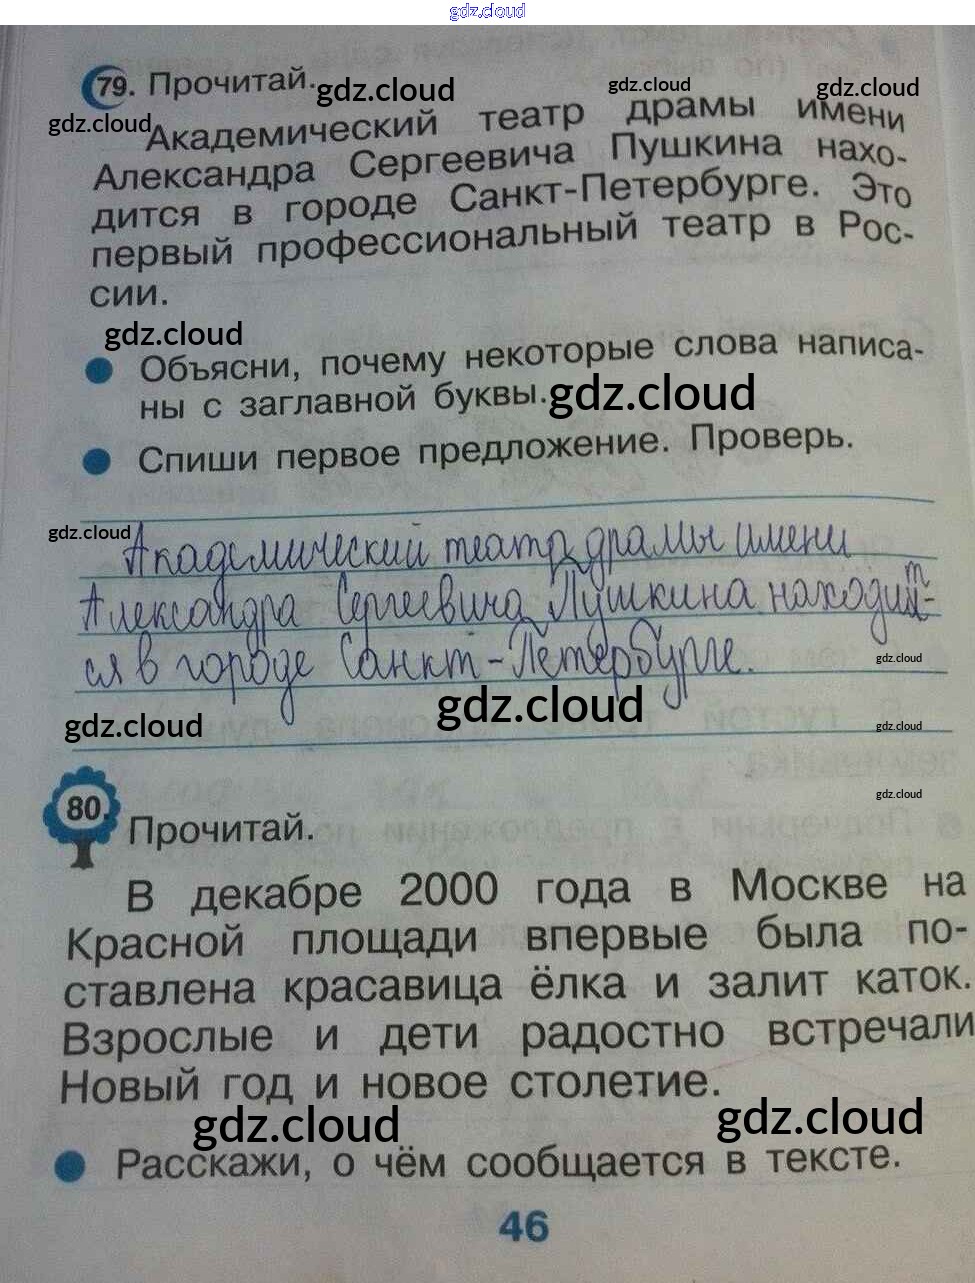 gdz.cloud
79. Прочитай.
gdz.cloud
gdz.cloud
gdz.cloud
gdz.cloud
Академический театр драмы имени
Александра Сергеевича Пушкина нахо-
дится в городе Санкт-Петербурге. Это
первый профессиональный театр в Рос-
сии.
gdz.cloud
Объясни, почему некоторые слова написа-
ны с заглавной буквы.
gdz.cloud
Спиши первое предложение. Проверь.
gdz.cloud
Академический театр драмы имени
Александра Сергеевича Пушкина находит-
ся в городе Санкт-Петербурге.
gdz.cloud
gdz.cloud
gdz.cloud
gdz.cloud
gdz.cloud
80. Прочитай.
В декабре 2000 года в Москве на
Красной площади впервые была по-
ставлена красавица ёлка и залит каток.
Взрослые и дети радостно встречали
Новый год и новое столетие.
gdz.cloud
gdz.cloud
Расскажи, о чём сообщается в тексте.
46